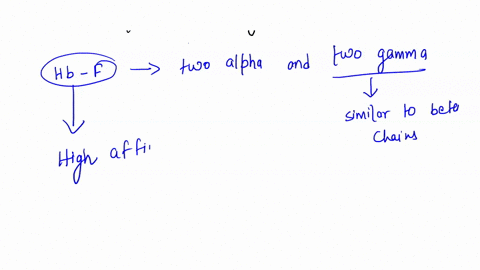 Hb-F → two alpha and two gamma
↓
similar to beta
chains
↓
High affi